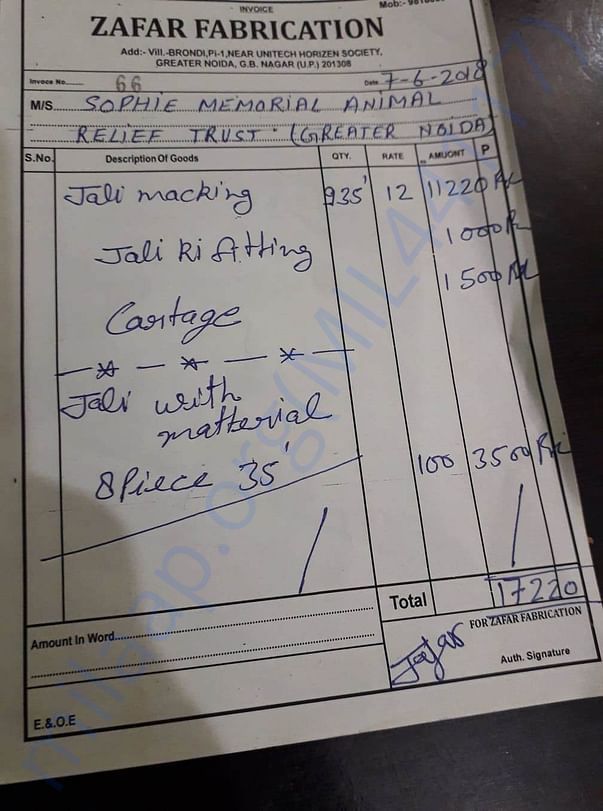 INVOICE
Mob:-
ZAFAR FABRICATION
Add:- Vill.-BRONDI,PI-1,NEAR UNITECH HORIZEN SOCIETY,
GREATER NOIDA, G.B. NAGAR (U.P.) 201308
Invoce No. 66 Date 7-6-2018
M/S SOPHIE MEMORIAL ANIMAL
RELIEF TRUST (GREATER NOIDA)
S.No. Description Of Goods QTY. RATE AMUONT P
Jali macking 935' 12 11220 Rs
Jali ki fitting 1000 Rs
Cartage 1500 Rs
Jali with
matterial
8 Piece 35' 100 3500 Rs
Total 17220
Amount In Word
FOR ZAFAR FABRICATION
Zafar
Auth. Signature
E.&.O.E